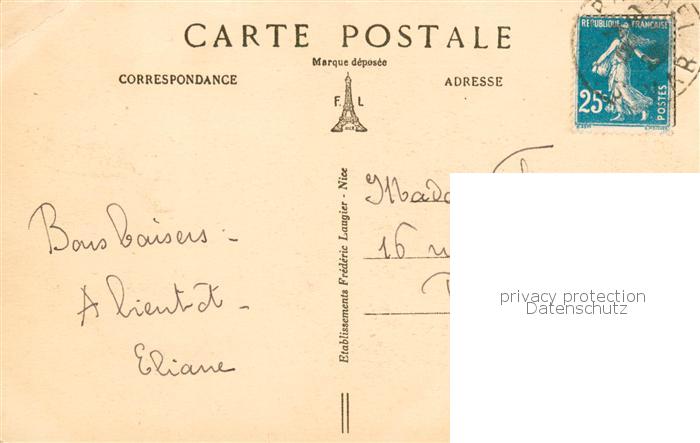 CARTE POSTALE
Marque déposée
CORRESPONDANCE
ADRESSE
F. L
NICE
REPUBLIQUE FRANÇAISE
25c
POSTES
VAR
Etablissements Frédéric Laugier - Nice
Bons baisers -
A bientôt -
Eliane
16
privacy protection
Datenschutz